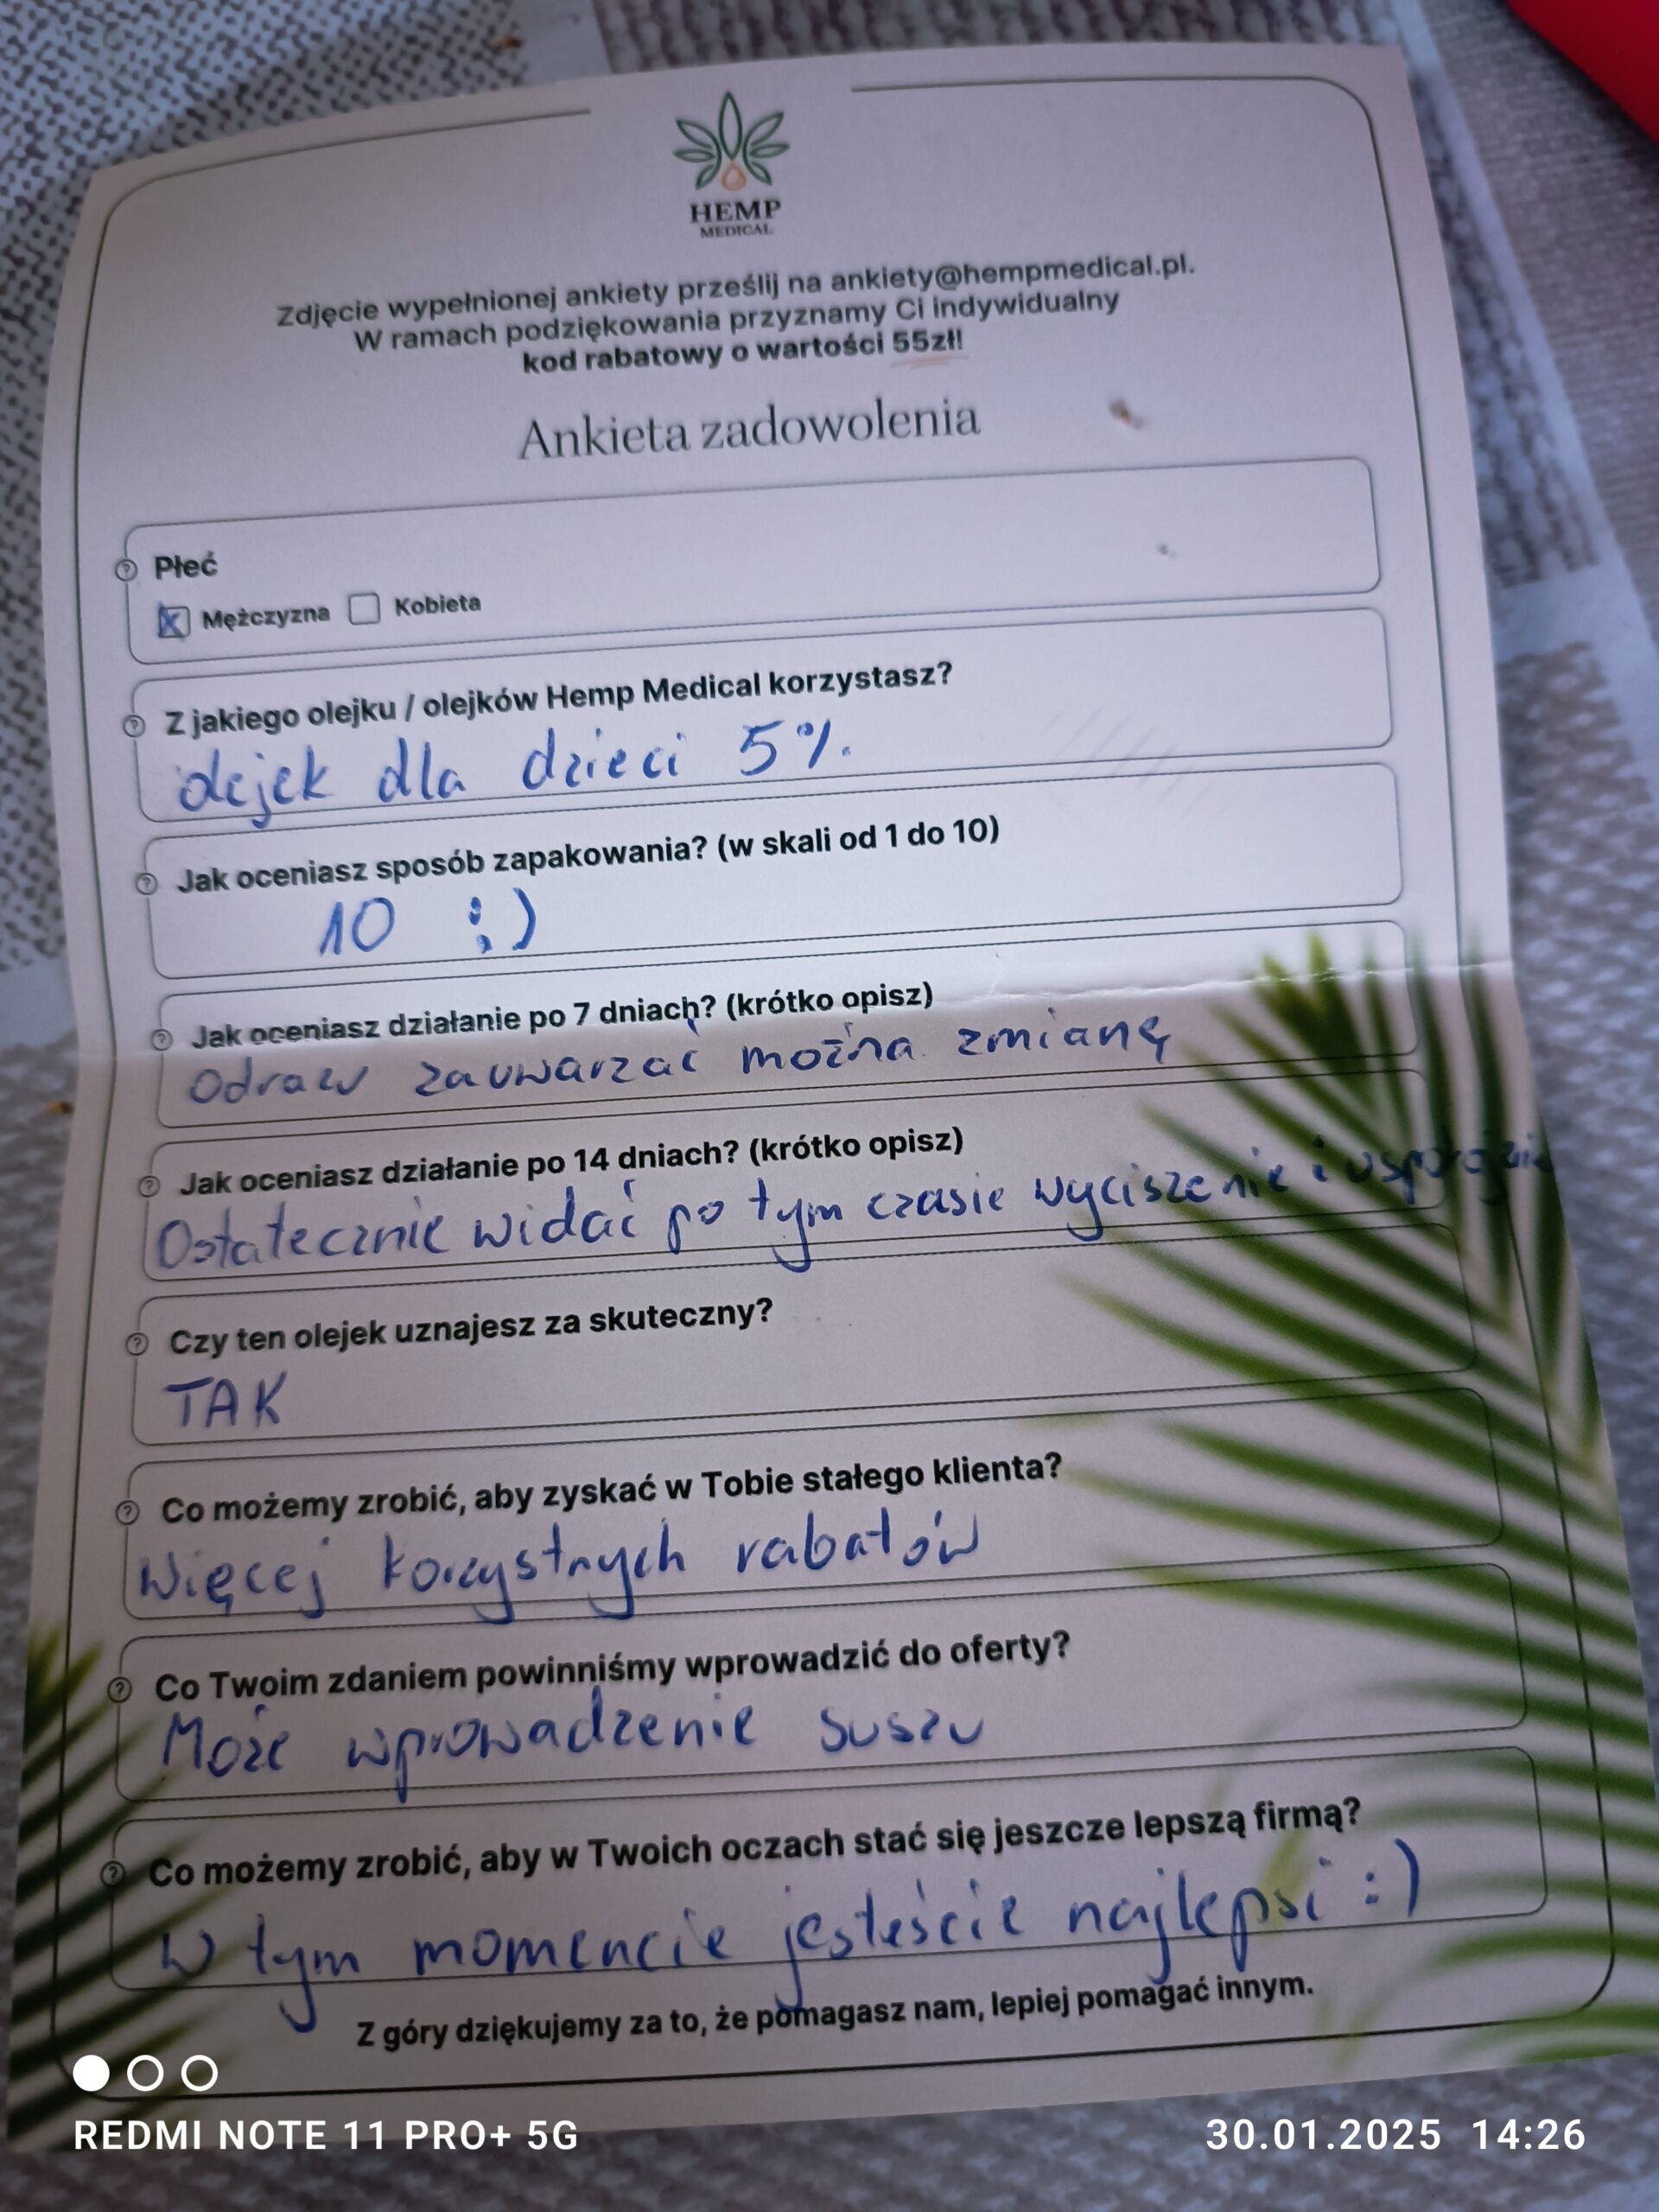 HEMP
MEDICAL
Zdjęcie wypełnionej ankiety prześlij na ankiety@hempmedical.pl.
W ramach podziękowania przyznamy Ci indywidualny
kod rabatowy o wartości 55zł!
Ankieta zadowolenia
Płeć
Mężczyzna Kobieta
Z jakiego olejku / olejków Hemp Medical korzystasz?
olejek dla dzieci 5%.
Jak oceniasz sposób zapakowania? (w skali od 1 do 10)
10 :)
Jak oceniasz działanie po 7 dniach? (krótko opisz)
Odrazu zauwarzać można zmianę
Jak oceniasz działanie po 14 dniach? (krótko opisz)
Ostatecznie widać po tym czasie wyciszenie i
Czy ten olejek uznajesz za skuteczny?
TAK
Co możemy zrobić, aby zyskać w Tobie stałego klienta?
Więcej korzystnych rabatów
Co Twoim zdaniem powinniśmy wprowadzić do oferty?
Może wprowadzenie suszu
Co możemy zrobić, aby w Twoich oczach stać się jeszcze lepszą firmą?
W tym momencie jesteście najlepsi :)
Z góry dziękujemy za to, że pomagasz nam, lepiej pomagać innym.
REDMI NOTE 11 PRO+ 5G
30.01.2025 14:26